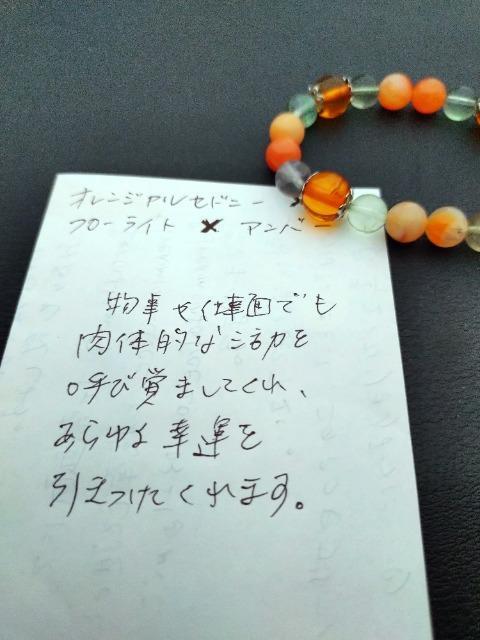 オレンジアルセドニー ×
フローライト × アンバー
物事や仕事面でも
肉体的な活力を
呼び覚ましてくれ、
あらゆる幸運を
引きつけてくれます。